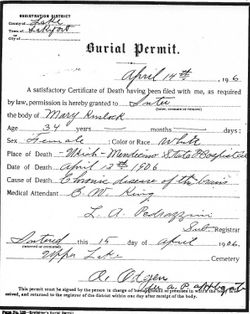 REGISTRATION DISTRICT
County of Lake
Town of Lakeport
City of
Burial Permit.
April 14th 1906
A satisfactory Certificate of Death having been filed with me, as required
by law, permission is hereby granted to Inter
the body of Mary
Age 34 years months days:
Sex Female: Color or Race White
Place of Death Ukiah-Mendocino State Hospital
Date of Death April 12th 1906
Cause of Death Chronic disease of the brain
Medical Attendant B. W. King
L. A.
Sub Registrar.
Interred this 15 day of April 1906
Upper Lake Cemetery
This permit must be signed by the person in charge of premises in which the body is
and returned to the registrar of the district within one day after receipt of the body.